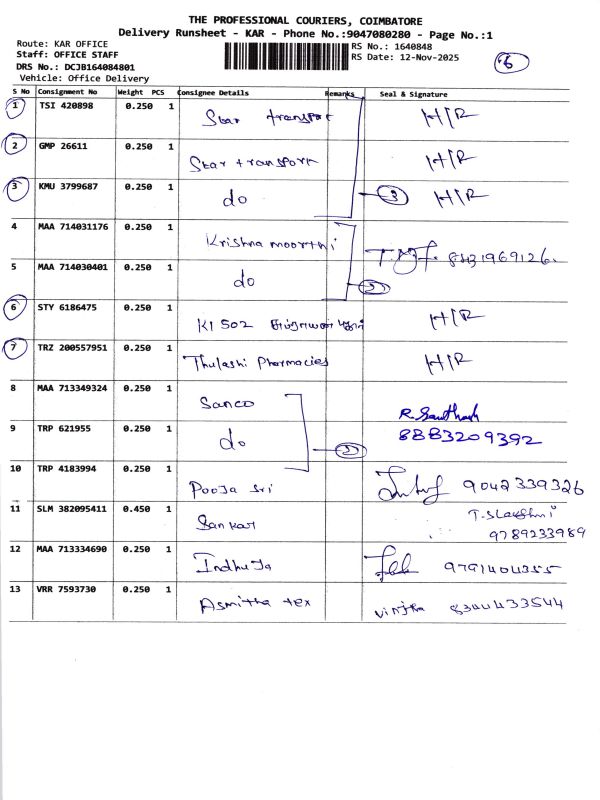 THE PROFESSIONAL COURIERS, COIMBATORE
Delivery Runsheet - KAR - Phone No.:9047080280 - Page No.:1
Route: KAR OFFICE RS No.: 1640848
Staff: OFFICE STAFF RS Date: 12-Nov-2025 6
DRS No.: DCJB164084801
Vehicle: Office Delivery
S No Consignment No Weight PCS Consignee Details Remarks Seal & Signature
1 TSI 420898 0.250 1 Star transport H/R
2 GMP 26611 0.250 1 Star transport H/R
3 KMU 3799687 0.250 1 do 3 H/R
4 MAA 714031176 0.250 1 Krishna moorthi
8431969126
5 MAA 714030401 0.250 1 do 2
6 STY 6186475 0.250 1 K1 502 H/R
7 TRZ 200557951 0.250 1 Thulashi Pharmacies H/R
8 MAA 713349324 0.250 1 Sanco R. Santhosh
9 TRP 621955 0.250 1 do 2 8883209392
10 TRP 4183994 0.250 1 Pooja Sri 9042339326
11 SLM 382095411 0.450 1 Sankar T. SLakshmi
9789233989
12 MAA 713334690 0.250 1 Indhuja 9791404355
13 VRR 7593730 0.250 1 Asmitha tex 8344433544